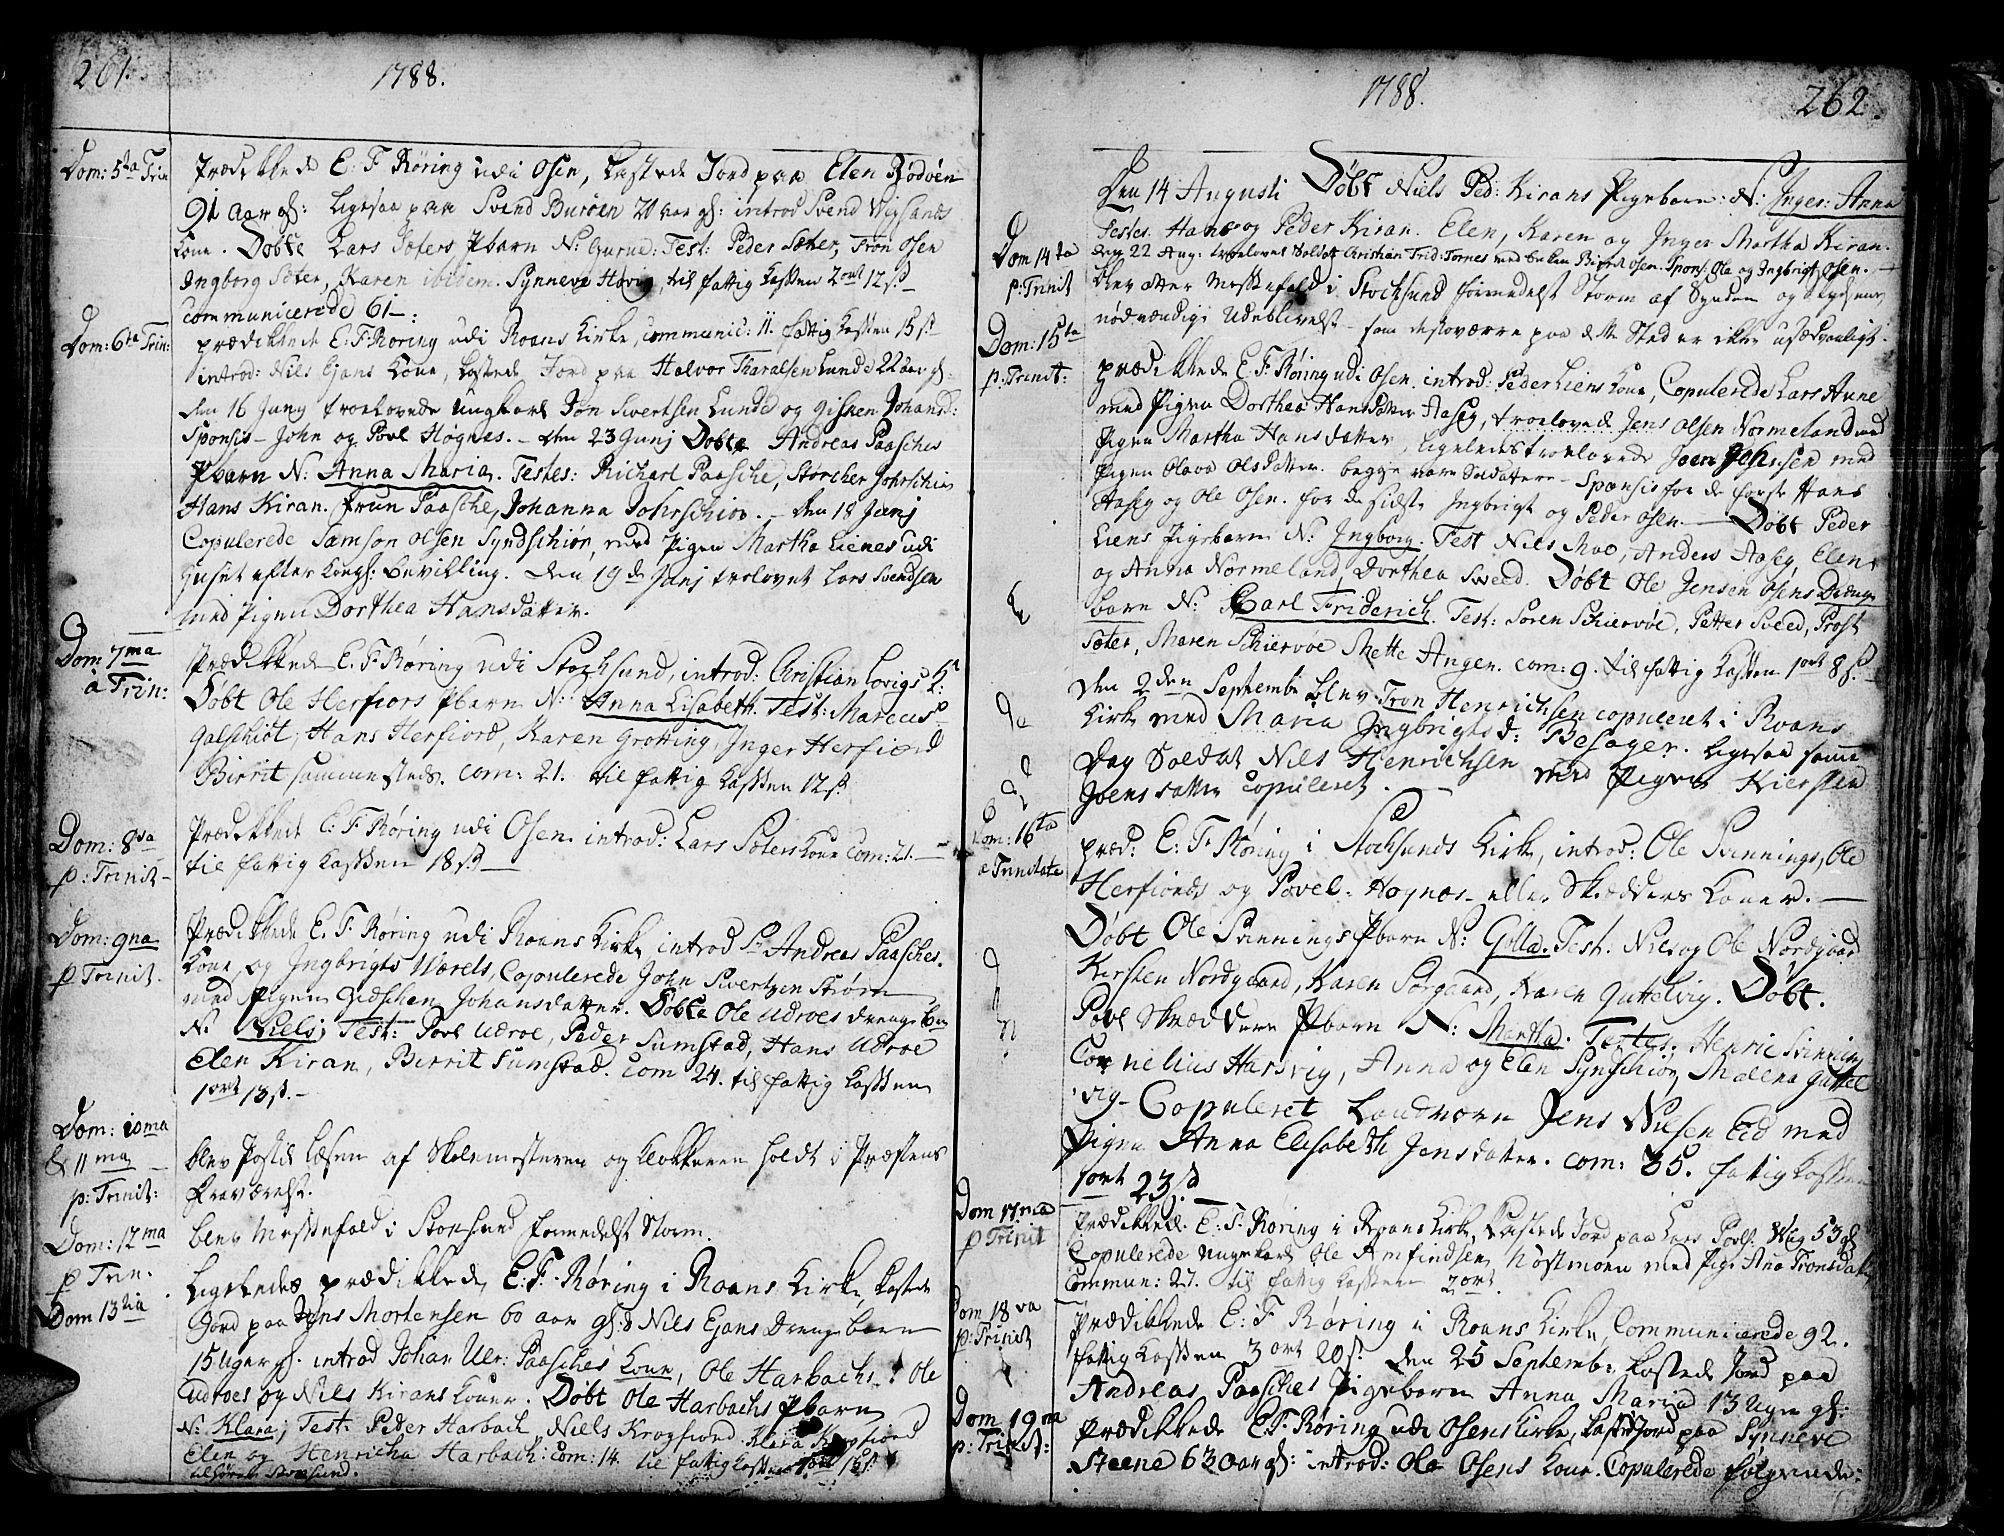 261.
1788.
Dom: 5ta Trin
Prædikkede E: F Røring udi Osen, kastede Jord paa Elen Rødøen
91 Aar gl: ligesaa paa Svend Burøen 20 aar gl: introd Svend Vigsands
Kone. Døbte Lars Sæters Pbarn N: Gurue: Test: Peder Sæter, Tron Osen
Ingborg Sæter, Karen ibidem. Synneve Høvig, til fattig Kassen 2 ort 12 s
communicerede 61 -:
Dom: 6ta Trin:
prædikkede E: F: Røring udi Roans Kirke, communic: 11. fattig Kassen 15 s
introd: Niels Ejans Kone, kastede Jord paa Halvor Tharalsen Lunde 22 aar gl.
den 16 Junj troelovede Ungkarl Jon Svertsen Lunde og Gisken Johansd:
Sponsis - John og Povl Høgnes. - den 23 Junj Døbte Andreas Paasches
Pbarn N: Anna Maria. Testes: Richart Paasche, Storcher Johrschiør
Hans Kiran. frun Paasche, Johanna Johrschiør. - den 18 Junj
Copulerede Samson Olsen Syndschiør, med Pigen Martha Lienes udi
Huset efter Kongl: bevilling. den 19de Junj trolovet Lars Svendsen
med Pigen Dorthea Hansdatter.
Dom: 7ma
a Trin:
Prædikkede E. F. Røring udi Stochsund, introd: Christian Lovigs K:
Døbt Ole Herfiors Pbarn N: Anna Lisabeth. Test: Marcus
Galschiøt, Hans Herfiord, Karen Grotting, Inger Herfiord
Birrit sammesteds. com: 21. til fattig Kassen 12 s
Dom: 8va
p: Trinit -
Prædikkede E: F Røring udi Osen. introd: Lars Sæters Kone Com: 21. -
til fattig Kassen 18 s -
Dom: 9na
p Trinit.
Prædikkede E. F. Røring udi Roans Kirke introd Sr Andreas Paasches
Kone og Ingbrigts Værels, Copulerede John Svertzen Strøm
med Pigen Gidschen Johansdatter. Døbte Ole Udroes drengebarn
N: Niels; Test: Povl Udroe, Peder Sumstad, Hans Udroe
Elen Kiran, Birrit Sumstad. Com 24. til fattig Kassen
1 ort 13 s. -
Dom: 10ma
& 11ma
p: Trinit:
blev Postil læsen af Skolemesteren og Klokkeren holdt i Præstens
fraværelse.
Dom: 12ma
p Trin.
blev Messefald i Stoxsund formedelst Storm.
Dom 13tia
Ligeledes prædikkede E: F. Røring i Roans Kirke, kastede
Jord paa Jens Mortensen 60 aar gl: & Niels Ejans Drengebarn
15 Uger gl. introd Johan Ulr: Paasches Kone, Ole Harbachs - ! Ole
Udroes og Niels Kirans Koner. Døbt Ole Harbachs Pbarn
N: Klara; Test: Peder Harbach, Niels Krogfiord. Klara Krogfiord
Elen og Henricha Harbach: Com: 14. til fattig Kassen 1 ort 16 s
tilhører Stoxsund.
1788.
262.
Den 14 Augusti Døbt Niels Ped: Kirans Pigebarn N: Inger: Anna
Testes. Hans og Peder Kiran. Elen, Karen og Inger Martha Kiran.
Dom 14ta
p: Trinit
den 22 Aug: trolovet Soldat Christian Frid: Tornes med Enken Birrit Osen. Spons: Ola og Ingbrigt Osen. -
blev atter Messefald i Stochsund formedelst Storm af Synden og Præstens
nødvændige Udeblivelse - som desværre paa dette Sted er ikke usædvanligt.
Dom: 15ta
p: Trinit:
Prædikkede E. F. Røring udi Osen. introd: Peder Liens Kone, Copulerede Lars Aune
med Pigen Dorthea Hansdatter Aaseg, troelovede Jens Olsen Normeland med
Pigen Martha Hansdatter, ligeledes troelovede Joen Johnsen med
Pigen Olava Olsdatter. begge vare Soldatter - Sponsis for de første Hans
Aaseg og Ole Osen. for de sidste Ingbrigt og Peder Osen. - Døbt Peder
Liens Pigebarn N: Ingborg. Test Niels Moe, Anders Aaseg, Elen
og Anna Normeland, Dorthea Sweed. Døbt Ole Jensen Osens Drenge
barn N: Carl Friderich. Test: Søren Schiervøe, Petter Sveed, Prost
Sæter, Maren Schiervøe Mette Angen. com: 9. til fattig Kassen 1 ort 8 s. -
Den 2den Septembr blev Tron Henrichsen copuleret i Roans
Kirke med Maria Ingbrigtsd: Besager. ligesaa samme
Dag Soldat Niels Henrichsen med Pigen Kiersten
Joensdatter copuleret.
Dom: 16ta
a Trinitate
præd: E. F. Røring i Stochsunds Kirke, introd: Ole Svennings, Ole
Herfiords og Povel. Høgnes - eller Skrædders Koner. -
Døbt Ole Svennings Pbarn N: Golla. Test: Niels og Ole Nordgaard
Kirsten Nordgaard, Karen Sørgaard, Karen Guttelvig. Døbt.
Povl Skrædders Pbarn N: Martha. Testes. Henric Svenning
Cornelius Harsvig, Anna og Elen Synschiør, Malena Guttel
vig - Copuleret Landværn Jens Nielsen Eid med
Pigen Anna Elisabeth Jensdatter. com: 35. fattig Kassen
1 ort 23 s
Dom 17ma
p Trinit
Prædikkede. E: F: Røring i Roans Kirke, kastede Jord paa Lars Povls: Wiig 53 gl
Copulerede Ungekarl Ole Arnfindsen Nøstmoen med Pige Ana Tronsdatter
Commun: 27. til fattig Kassen 2 ort.
Dom 18va
p: Trinit
Prædikkede E: F Røring i Roans Kirke, Communicerede 92.
fattig Kassen 3 ort 20 s. Den 25 Septembr kastede Jord paa
Andreas Paasches Pigebarn Anna Maria 13 Ugr gl:
Dom 19na
p: Trinit:
Prædikkede E. F: Røring udi Osens Kirke, kasted Jord paa Synneve
Steene 63 aar gl: introd: Ole Osens Kone. Copulerede følgende: